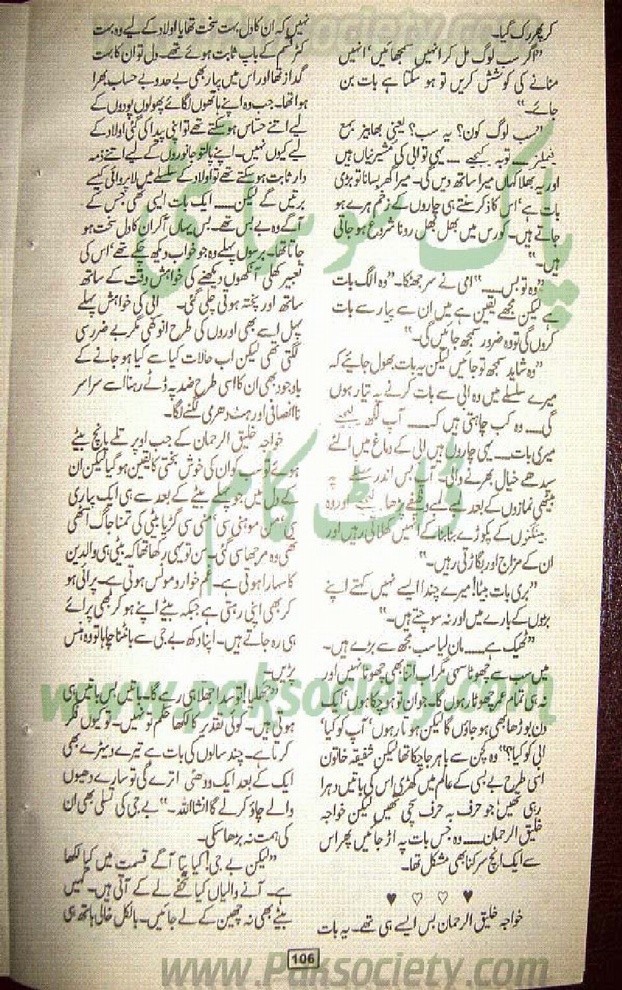 کر پھر رک گیا۔
”اگر سب لوگ مل کر انہیں سمجھائیں‘ انہیں
منانے کی کوشش کریں تو ہو سکتا ہے بات بن
جائے۔“
”سب لوگ کون؟ یہ سب؟ یعنی بھابیز بمع
فیملیز۔۔۔ توبہ کیجیے۔۔۔ یہی تو ابی کی مشیر نیاں ہیں
اور یہ بھلا کہاں میرا ساتھ دیں گی۔ میرا گھر بسانا تو بڑی
بات ہے‘ اس کا ذکر سنتے ہی چاروں کے زخم ہرے ہو
جاتے ہیں۔ کورس میں بھل بھل رونا شروع ہو جاتی
ہیں۔“
”وہ تو بس۔۔۔“ امی نے سر جھٹکا۔ ”وہ الگ بات
ہے لیکن مجھے یقین ہے میں ان سے پیار سے بات
کروں گی تو وہ ضرور سمجھ جائیں گی۔“
”وہ شاید سمجھ تو جائیں لیکن یہ بات بھول جائیے کہ
میرے سلسلے میں وہ ابی سے بات کرنے پہ تیار ہوں
گی۔۔۔ وہ کب چاہتی ہیں کہ۔۔۔ آپ لکھ لیجئے
میری بات۔۔۔ یہی چاروں ہیں ابی کے دماغ میں الٹے
سیدھے خیال بھرنے والی۔ آپ بس اندر سے پہ
بیٹھی نمازوں کے بعد لمبے لمبے وظیفے پڑھا لیجیے اور وہ
بینگنوں کے پکوڑے بنا بنا کے انہیں کھلاتی رہیں اور
ان کے مزاج اور بگاڑتی رہیں۔“
”بری بات بیٹا! میرے چندا ایسے نہیں کہتے اپنے
بڑوں کے بارے میں اور نہ سوچتے ہیں۔“
”ٹھیک ہے۔۔۔ مان لیا سب مجھ سے بڑے ہیں۔
میں سب سے چھوٹا سہی مگر اب اتنا بھی چھوٹا نہیں اور
نہ ہی تمام عمر چھوٹا رہوں گا۔ جوان تو ہو چکا ہوں‘ ایک
دن بوڑھا بھی ہو جاؤں گا لیکن ہوتا رہوں‘ آپ کو کیا‘
ابی کو کیا؟“ وہ کچن سے باہر جا چکا تھا لیکن شفیقہ خاتون
اسی طرح بے بسی کے عالم میں کھڑی اس کی باتیں دہرا
رہی تھیں‘ جو حرف بہ حرف سچی تھیں لیکن خواجہ
خلیق الرحمان۔۔۔ وہ جس بات پہ اڑ جائیں پھر اس
سے ایک انچ سرکنا بھی مشکل تھا۔
♥ ♡ ♡ ♥
خواجہ خلیق الرحمان بس ایسے ہی تھے۔ یہ بات
نہیں کہ ان کا دل بہت سخت تھا یا اولاد کے لیے وہ بہت
کٹر قسم کے باپ ثابت ہوئے تھے۔ دل تو ان کا بہت
گداز تھا اور اس میں پیار بھی بے حد و بے حساب بھرا
ہوا تھا۔ جب وہ اپنے ہاتھوں لگائے پھولوں پودوں کے
لیے اتنے حساس ہو سکتے تھے تو اپنی پیدا کی گئی اولاد کے
لیے کیوں نہیں۔ اپنے پالتو جانوروں کے لیے اتنے ذمہ
دار ثابت ہو سکتے تھے تو اولاد کے سلسلے میں لاپروائی کیسے
برتیں گے لیکن۔۔۔ ایک بات ایسی تھی جس کے
آگے وہ بے بس تھے۔ بس یہاں آکر ان کا دل سخت ہو
جاتا تھا۔ برسوں پہلے وہ جو خواب دیکھ چکے تھے‘ اس کی
تعبیر کھلی آنکھوں دیکھنے کی خواہش وقت کے ساتھ
ساتھ اور پختہ ہوتی چلی گئی۔ ابی کی خواہش پہلے
پہل اسے بھی اوروں کی طرح انوکھی مگر بے ضرر سی
لگتی تھی لیکن اب حالات کیا سے کیا ہو جانے کے
باوجود بھی ان کا اسی طرح ضد پہ ڈٹے رہنا اسے سراسر
ناانصافی اور ہٹ دھرمی لگنے لگا۔
خواجہ خلیق الرحمان کے جب اوپر تلے پانچ بیٹے
ہوئے تو سب کو ان کی خوش بختی کا یقین ہو گیا لیکن ان
کے دل میں جو پہلے بیٹے کے بعد سے ہی ایک پیاری
سی‘ من موہنی سی‘ منی سی گڑیا بیٹی کی تمنا جاگ اٹھی
تھی وہ مرجھا سی گئی۔ سن تو یہی رکھا تھا کہ بیٹی ہی والدین
کا سہارا ہوتی ہے۔ غم خوار و مونس ہوتی ہے۔ پرائی ہو
کر بھی اپنی رہتی ہے جبکہ بیٹے اپنے ہو کر بھی پرائے
ہی رہ جاتے ہیں۔ اپنا دکھ بے جی سے بانٹنا چاہا تو وہ ہنس
پڑیں۔
”جھلیا! تو سدا جھلا ہی رہے گا۔ باتیں بس باتیں ہی
ہوتی ہیں۔ کوئی تقدیر کا لکھا حکم تو نہیں۔ تو کیوں فکر
کرتا ہے۔ چند سالوں کی بات ہے تیرے ویہڑے بھی
ایک کے بعد ایک ووہٹی اترے گی تو سارے دھیوں
والے چاؤ کر لے گا انشاللہ۔“ بے جی کی تسلی بھی ان
کی ہمت نہ بڑھا سکی۔
”لیکن بے جی! کیا پتا آگے قسمت میں کیا لکھا
ہے۔ آنے والیاں کیا تحفے لے کے آتی ہیں۔ کہیں
بیٹے بھی نہ چھین کے لے جائیں۔ بالکل خالی ہاتھ ہی
106
پاک سوسائٹی
ڈاٹ کام
www.paksociety.com
www.Paksociety.com